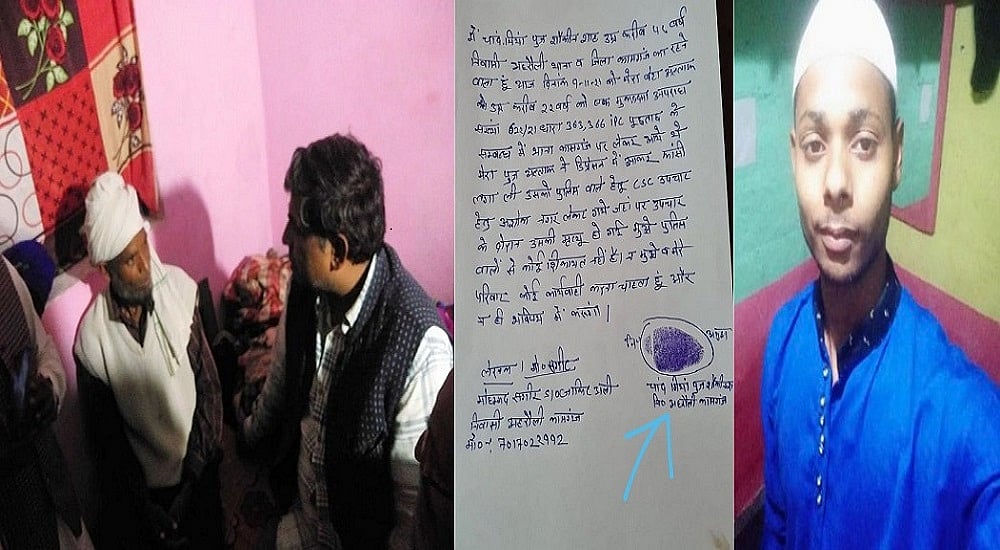 मैं चांद मियां पुत्र शौकीन शाह उम्र करीब 45 वर्ष
निवासी अहरौली थाना व जिला कासगंज का रहने
वाला हूं आज दिनांक 9-11-21 को मेरा बेटा अल्ताफ
उम्र करीब 22 वर्ष को एक मुकदमा अपराध
संख्या धारा 363, 366 IPC पूछताछ के
सम्बन्ध में थाना कासगंज पर लेकर आये थे
मेरा पुत्र अल्ताफ ने डिप्रेशन में आकर फांसी
लगा ली उसको पुलिस वाले हेतू CSC उपचार
हेतु अशोक नगर लेकर गये जहां पर उपचार
के दौरान उसकी मृत्यु हो गई मुझे पुलिस
वालों से कोई शिकायत नहीं है। न मुझे व मेरे
परिवार कोई कार्यवाही करना चाहता हूं और
न ही भविष्य में करूंगा।
नि० अंगूठा
लेखक । मो० सगीर
मोहम्मद सगीर S/O जाकिर अली
निवासी अहरौली कासगंज
मो०-: 7017022992
चांद मियां पुत्र शौकीन शाह
नि० अहरौली कासगंज